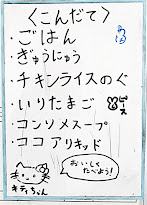 ＜こんだて＞
・ごはん
・ぎゅうにゅう
・チキンライスのぐ
・いりたまご
・コンソメスープ
・ココアリキッド
おいしく
たべよう!
キティちゃん